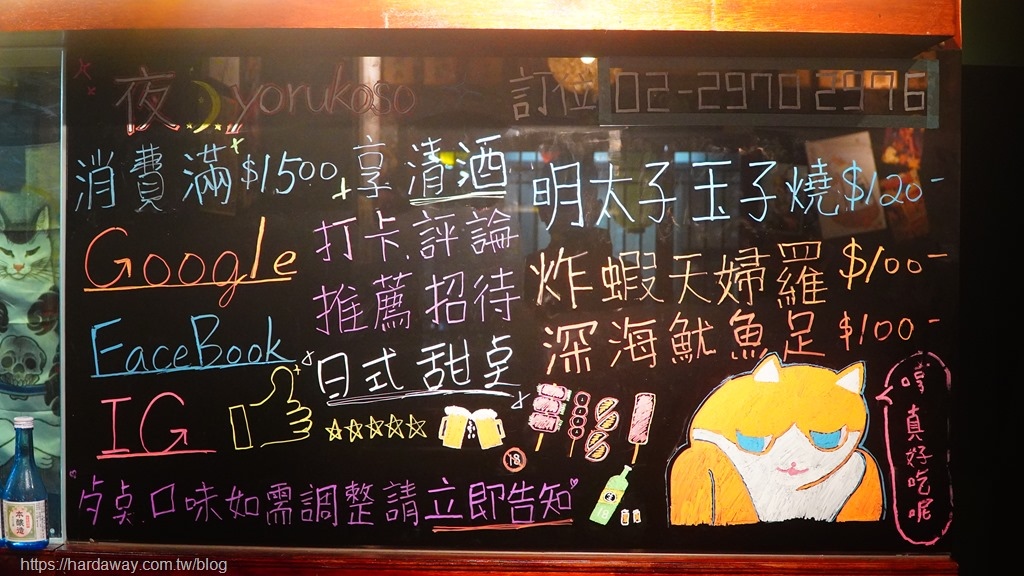 夜 yorukoso
訂位 02-2970 2976
消費滿$1500享清酒
Google
FaceBook
IG
打卡.評論
推薦招待
日式甜点
明太子玉子燒$120-
炸蝦天婦羅$100-
深海魷魚足$100-
18
真好吃呢
口味如需調整請立即告知
本釀造
https://hardaway.com.tw/blog